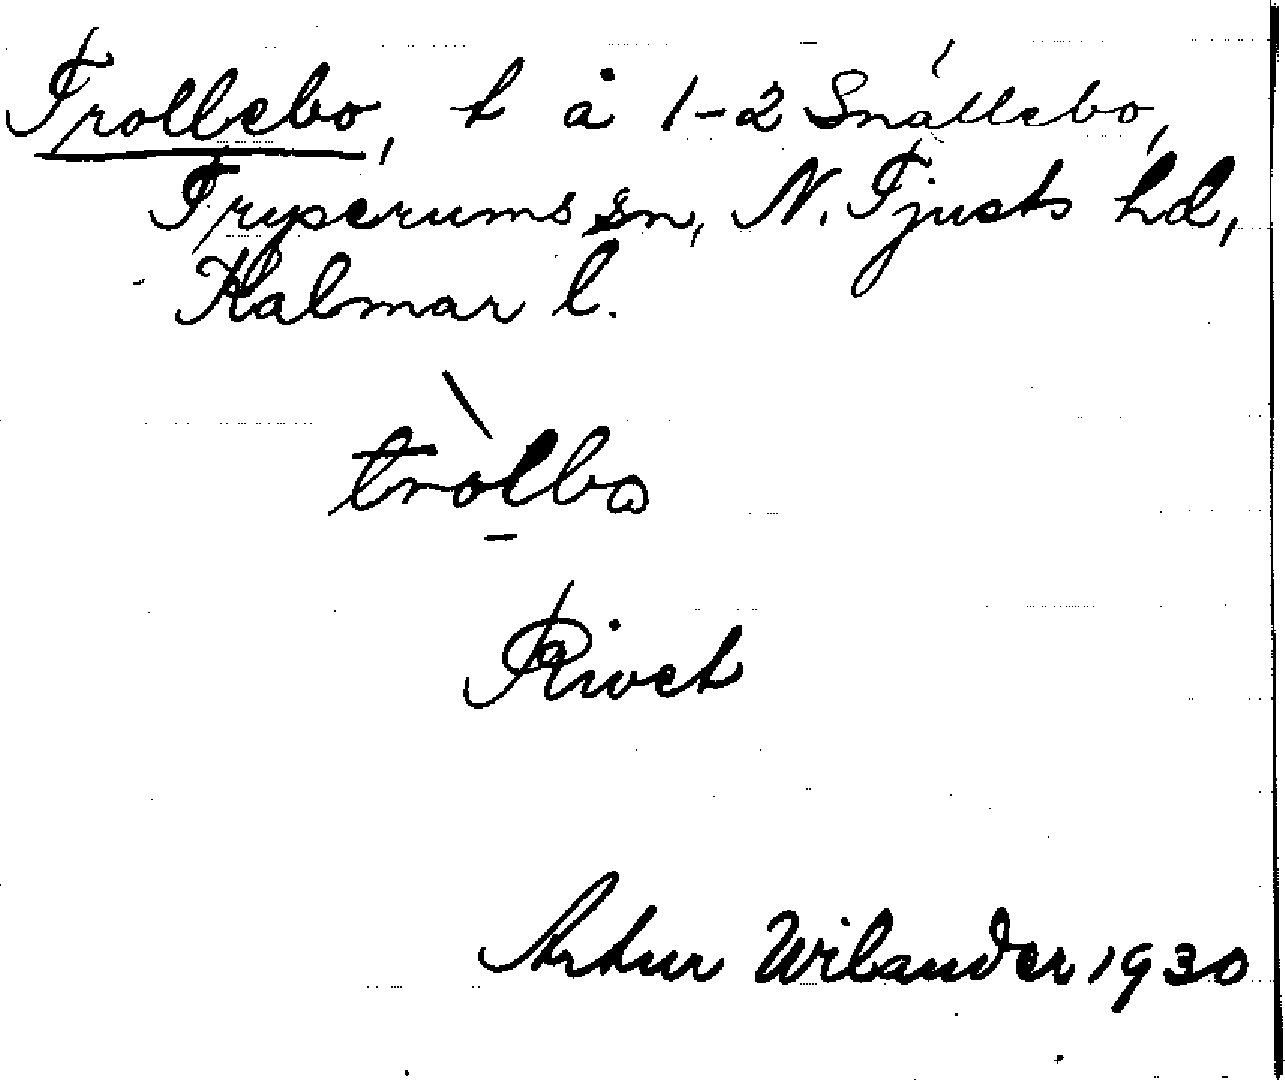 Trollebo, t å 1-2 Snällebo,
Tryserums sn, N. Tjusts hd,
Kalmar l.
trolbo
Rivet
Artur Wilander 1930